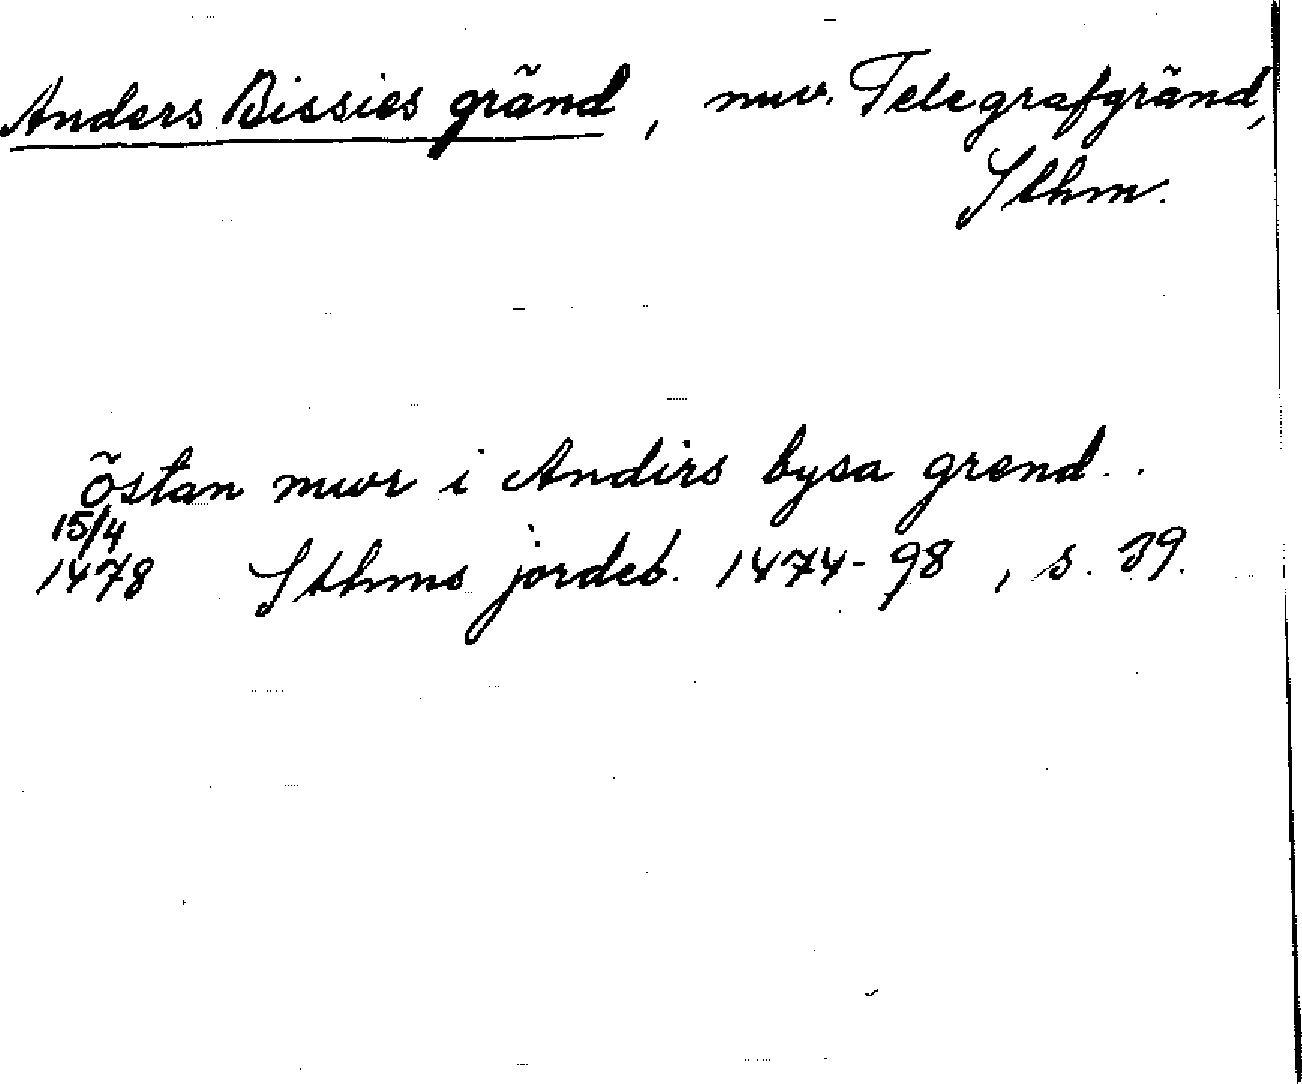 Anders Bissies gränd, nuv. Telegrafgränd,
Sthm.
östan mwr i Andirs bysa grend..
15/4
1478 Sthms jordeb. 1474-98, s. 39.